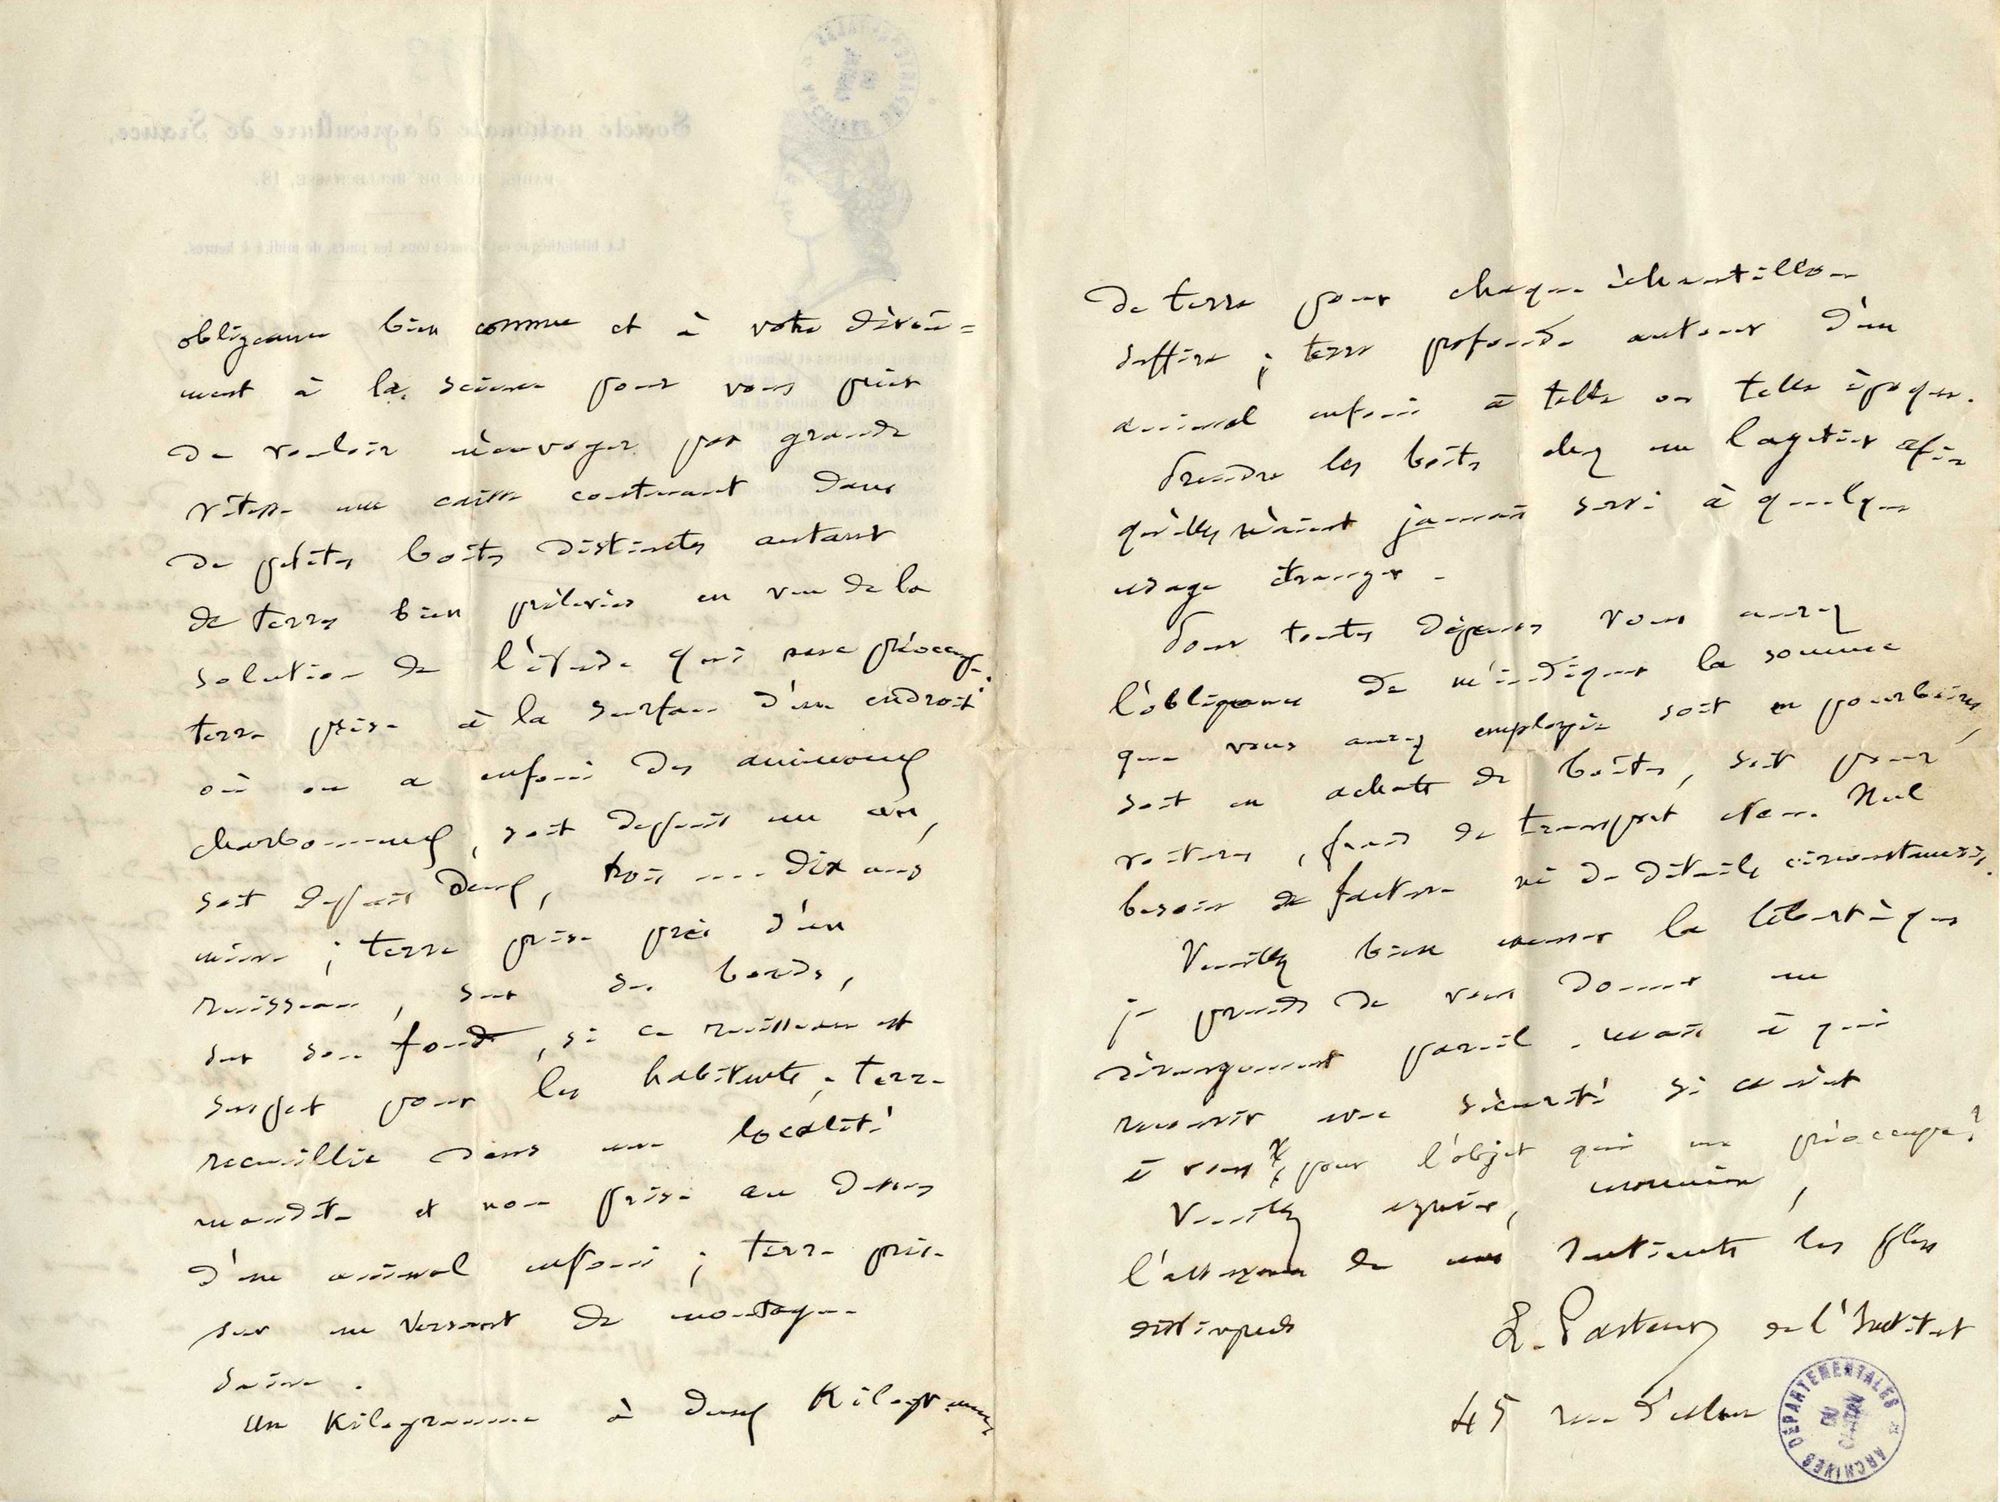 obligeance bien connue et à votre dévoû=
ment à la science pour vous prier
de vouloir m'envoyer par grande
vitesse une caisse contenant dans
de petites boîtes distinctes autant
de terres bien prélevées en vue de la
solution de l'étude qui me préoccupe.
terre prise à la surface d'un endroit
où on a enfoui des animaux
charbonneux, soit depuis un an,
soit depuis deux, trois .... dix ans
même ; terre prise près d'un
ruisseau, sur des bords,
sur son fond, si ce ruisseau est
suspect pour les habitants ; terre
recueillie dans une localité
maudite et non prise au dessus
d'un animal enfoui ; terre prise
sur un versant de montagne
saine.
Un Kilogramme à deux Kilogrammes
de terre pour chaque échantillon
suffira ; terre profonde autour d'un
animal enfoui à telle ou telle époque.
Prendre les boîtes chez un layetier afin
qu'elles n'aient jamais servi à quelque
usage étranger.
Pour toutes dépenses vous aurez
l'obligeance de m'indiquer la somme
que vous aurez employée soit en pourboires,
soit en achats de boîtes, soit pour
voitures, frais de transport etc... Nul
besoin de facture ni de détails circonstanciés.
Veuillez bien excuser la liberté que
je prends de vous donner un
dérangement pareil, mais à qui
recourir avec sécurité si ce n'est
à vous, pour l'objet qui me préoccupe ?
Veuillez agréer, monsieur,
l'assurance de mes sentiments les plus
distingués
L. Pasteur de l'Institut
45 rue d'Ulm
ARCHIVES DÉPARTEMENTALES
DU
CANTAL
Société nationale d'agriculture de France,
PARIS, RUE DE BELLECHASSE, 18.
La bibliothèque est ouverte tous les jours, de midi à 4 heures.